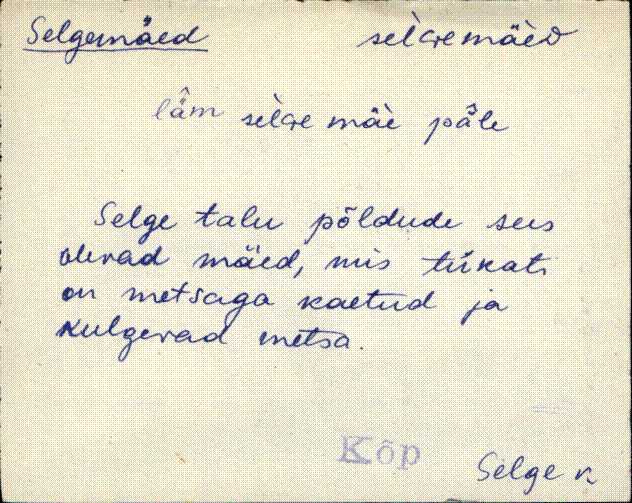 Selgemäed sèlGemäèD
lä̀m sèlGe mäè pä̀le
Selge talu põldude sees
olevad mäed, mis tükati
on metsaga kaetud ja
kulgevad metsa.
Kõp
Selge k.